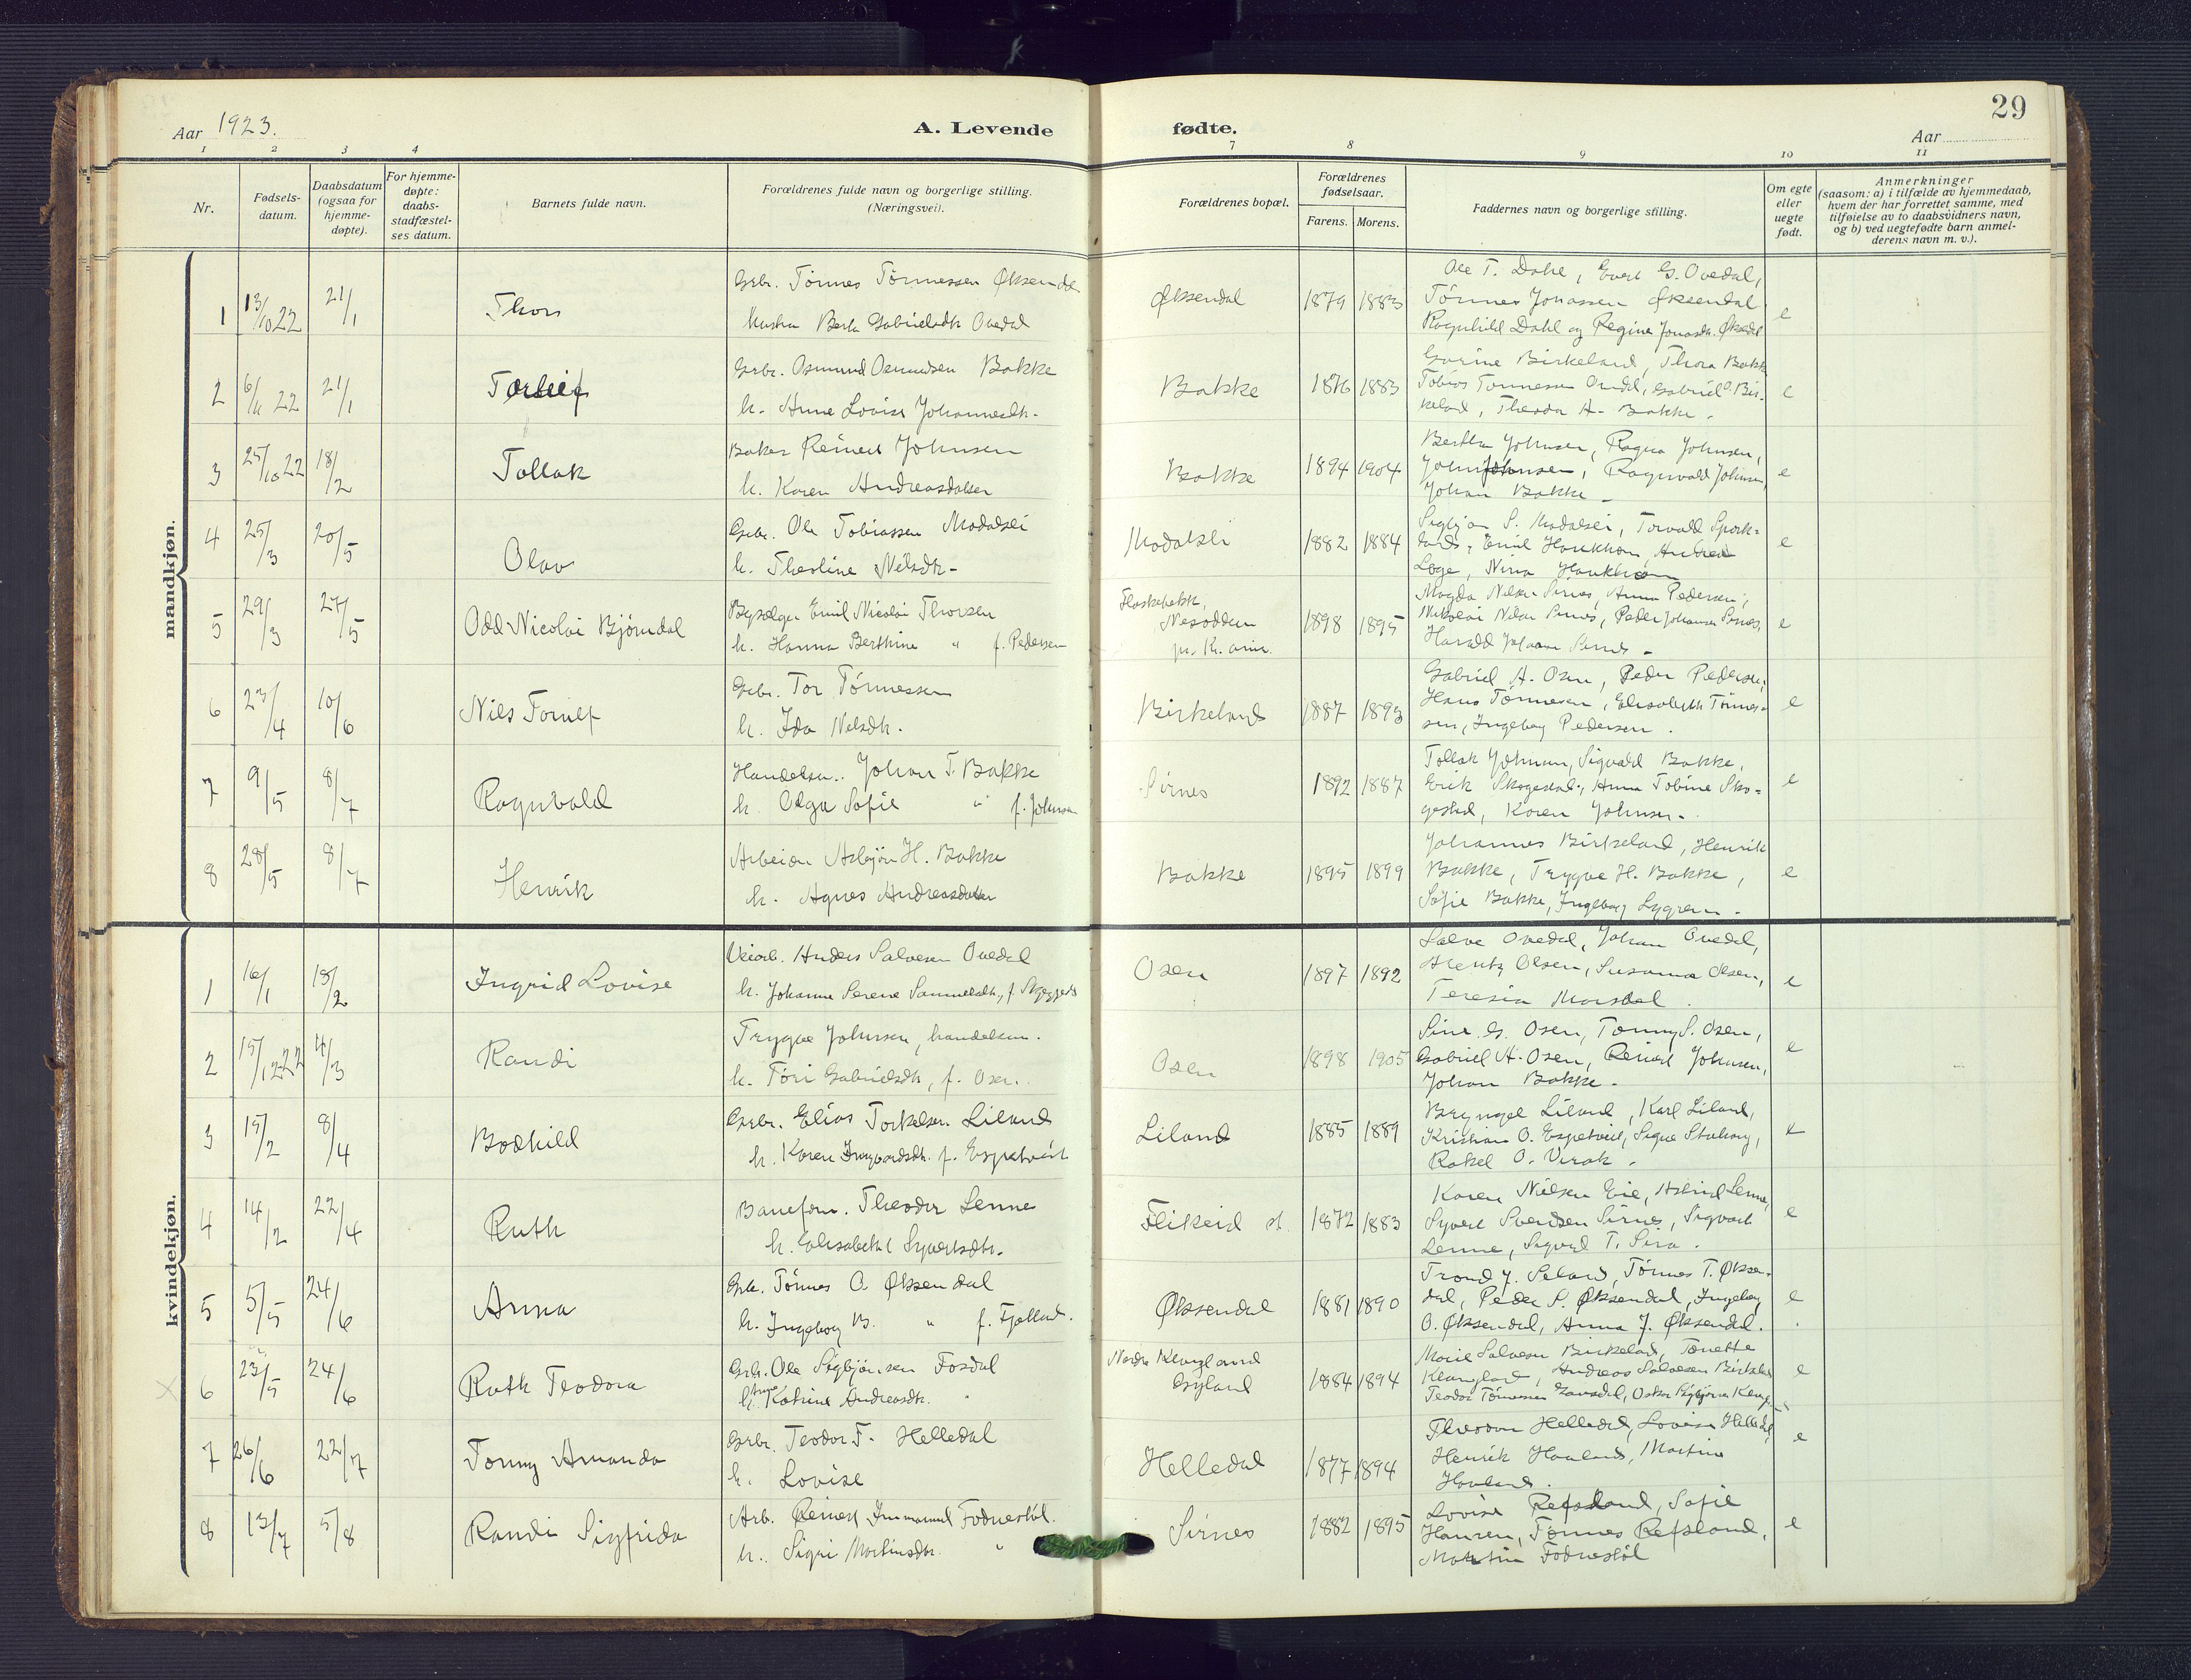 29
Aar 1923.
A. Levende fødte.
Aar
1 2 3 4 7 8 9 10 11
Nr.
Fødsels-
datum.
Daabsdatum
(ogsaa for
hjemme-
døpte).
For hjemme-
døpte:
daabs-
stadfæstel-
ses datum.
Barnets fulde navn.
Forældrenes fulde navn og borgerlige stilling.
(Næringsvei).
Forældrenes bopæl.
Forældrenes
fødselsaar.
Farens. Morens.
Faddernes navn og borgerlige stilling.
Om egte
eller
uegte
født.
Anmerkninger
(saasom: a) i tilfælde av hjemmedaab,
hvem der har forrettet samme, med
tilføielse av to daabsvidners navn,
og b) ved uegtefødte barn anmel-
derens navn m. v.).
mandkjøn.
1 13/10 22 21/1 Thor
Grbr. Tönnes Tönnessen Øksendal
Hustru Berta Gabrielsdtr Ovedal
Øksendal 1879 1883
Ole T. Dahl, Evert G. Ovedal,
Tönnes Jonassen Øksendal
Ragnhild Dahl og Regine Jonasdtr. Øksendal
e
2 6/11 22 21/1 Torleif
Grbr. Osmund Osmundsen Bakke
h. Anne Lovise Johannesdtr.
Bakke 1876 1883
Gurine Birkeland, Thora Bakke
Tobias Tönnessen Ovedal, Gabriel O. Bir-
keland, Theodor A. Bakke.
e
3 25/10 22 18/2 Tollak
Baker Reinert Johnsen
h. Karen Andreasdatter
Bakke 1894 1904
Bertha Johnsen, Ragna Johnsen,
John Johnsen, Ragnvald Johnsen,
Johan Bakke.
e
4 25/3 20/5 Olav
Grbr. Ole Tobiassen Modalsli
h. Theoline Nilsdtr.
Modalsli 1882 1884
Sigbjön S. Modalsli, Torvald Spork-
land, Emil Haukhom, Andrea
Loge, Nina Haukhom
e
5 29/3 27/5 Odd Nicolai Björndal
Emil Nicolai Thorsen
h. Hanna Berthine " f. Pedersen
Flaskebekk,
Nesodden
pr. Kr.ania.
1898 1895
Magda Nilsen Sirnes, Anna Pedersen,
Nikolai Nilsen Sirnes, Peder Johansen Sirnes,
Harald Johansen Sirnes.
e
6 23/4 10/6 Nils Torulf
Grbr. Tor Tönnessen
h. Ida Nilsdtr.
Birkeland 1887 1893
Gabriel A. Osen, Peder Pedersen,
Hans Tönnesen, Elisabeth Tönnes-
sen, Ingeborg Pedersen.
e
7 9/5 8/7 Ragnvald
Handelsm. Johan T. Bakke
h. Olga Sofie " f. Johnsen
Sirnes 1892 1887
Tollak Johnsen, Sigvald Bakke,
Erik Skogestad, Anna Tobine Sko-
gestad, Karen Johnsen.
e
8 28/5 8/7 Henrik
Arbeider Asbjörn H. Bakke
h. Agnes Andreasdatter
Bakke 1895 1899
Johannes Birkeland, Henrik
Bakke, Trygve H. Bakke,
Sofie Bakke, Ingeborg Lygren.
e
kvindekjøn.
1 16/1 18/2 Ingrid Lovise
Veiarb. Anders Salvesen Ovedal
h. Johanne Serene Samuelsdtr, f.
Osen 1897 1892
Salve Ovedal, Johan Ovedal,
Olsen, Susanna Olsen,
Teresia Mosdal.
e
2 15/12 22 4/3 Randi
Trygve Johnsen, handelsm.
h. Töri Gabrielsdtr, f. Osen.
Osen 1898 1905
Sine G. Osen, Tommy S. Osen,
Gabriel A. Osen, Reinert Johnsen,
Johan Bakke.
e
3 15/2 8/4 Bodhild
Grbr. Elias Torkelsen Liland
h. Karen Ingvardsdtr. f. Espetveit
Liland 1885 1889
Bryngel Liland, Karl Liland,
Kristian O. Espetveit, Signe Stuberg,
Rakel O. Virak.
e
4 14/2 22/4 Ruth
Baneform. Theodor Lenne
h. Elisabeth Syvertsdtr.
Flikeid st. 1872 1883
Karen Nielsen Eie, Astrid Lenne,
Syvert Svendsen Sirnes, Sigvart
Lenne, Sigurd T. Sira.
e
5 5/5 24/6 Anna
Grbr. Tönnes O. Øksendal
h. Ingeborg B. " f. Fjotland.
Øksendal 1881 1890
Trond J. Seland, Tönnes T. Øksen-
dal, Peder S. Øksendal, Ingeborg
O. Øksendal, Anna J. Øksendal.
e
X 6 23/5 24/6 Ruth Teodora
Grbr. Ole Sigbjörnsen Fosdal
h. Katrine Andreasdtr. "
Nordre Klungland
Gyland
1884 1894
Marie Salvesen Birkeland, Tonette
Klungland, Andreas Salvesen Birkeland
Teodor Tönnessen, Oskar Sigbjörnsen
e
7 26/6 22/7 Tonny Amanda
Grbr. Teodor F. Helledal
h. Lovise
Helledal 1877 1894
Theodor Helledal, Lovise Helledal,
Henrik Hovland, Martine
Hovland.
e
8 13/7 5/8 Randi Sigfrida
Arb. Reinert Immanuel Fodnestöl.
h. Sigri Martinsdtr. "
Sirnes 1882 1895
Lovise Refsland, Sofie
Hansen, Tönnes Refsland,
Martin Fodnestöl
e